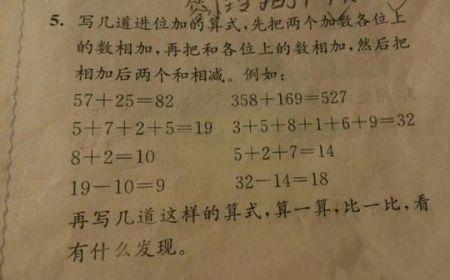 5. 写几道进位加的算式，先把两个加数各位上
的数相加，再把和各位上的数相加，然后把
相加后两个和相减。例如：
57+25=82 358+169=527
5+7+2+5=19 3+5+8+1+6+9=32
8+2=10 5+2+7=14
19-10=9 32-14=18
再写几道这样的算式，算一算，比一比，看
有什么发现。